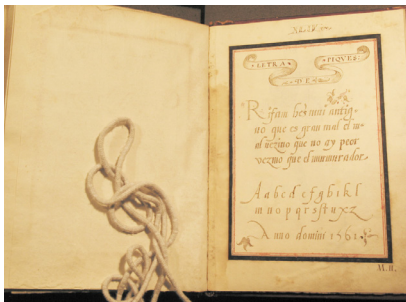 LETRA PIQVE
DE
Refran bes mui antig-
no que es gran mal el m-
al uezino que no ay peor
vezino que el murmurador
A a b c d e f g h i k l
m n o p q r s ſ t u x z
Anno domini 1561